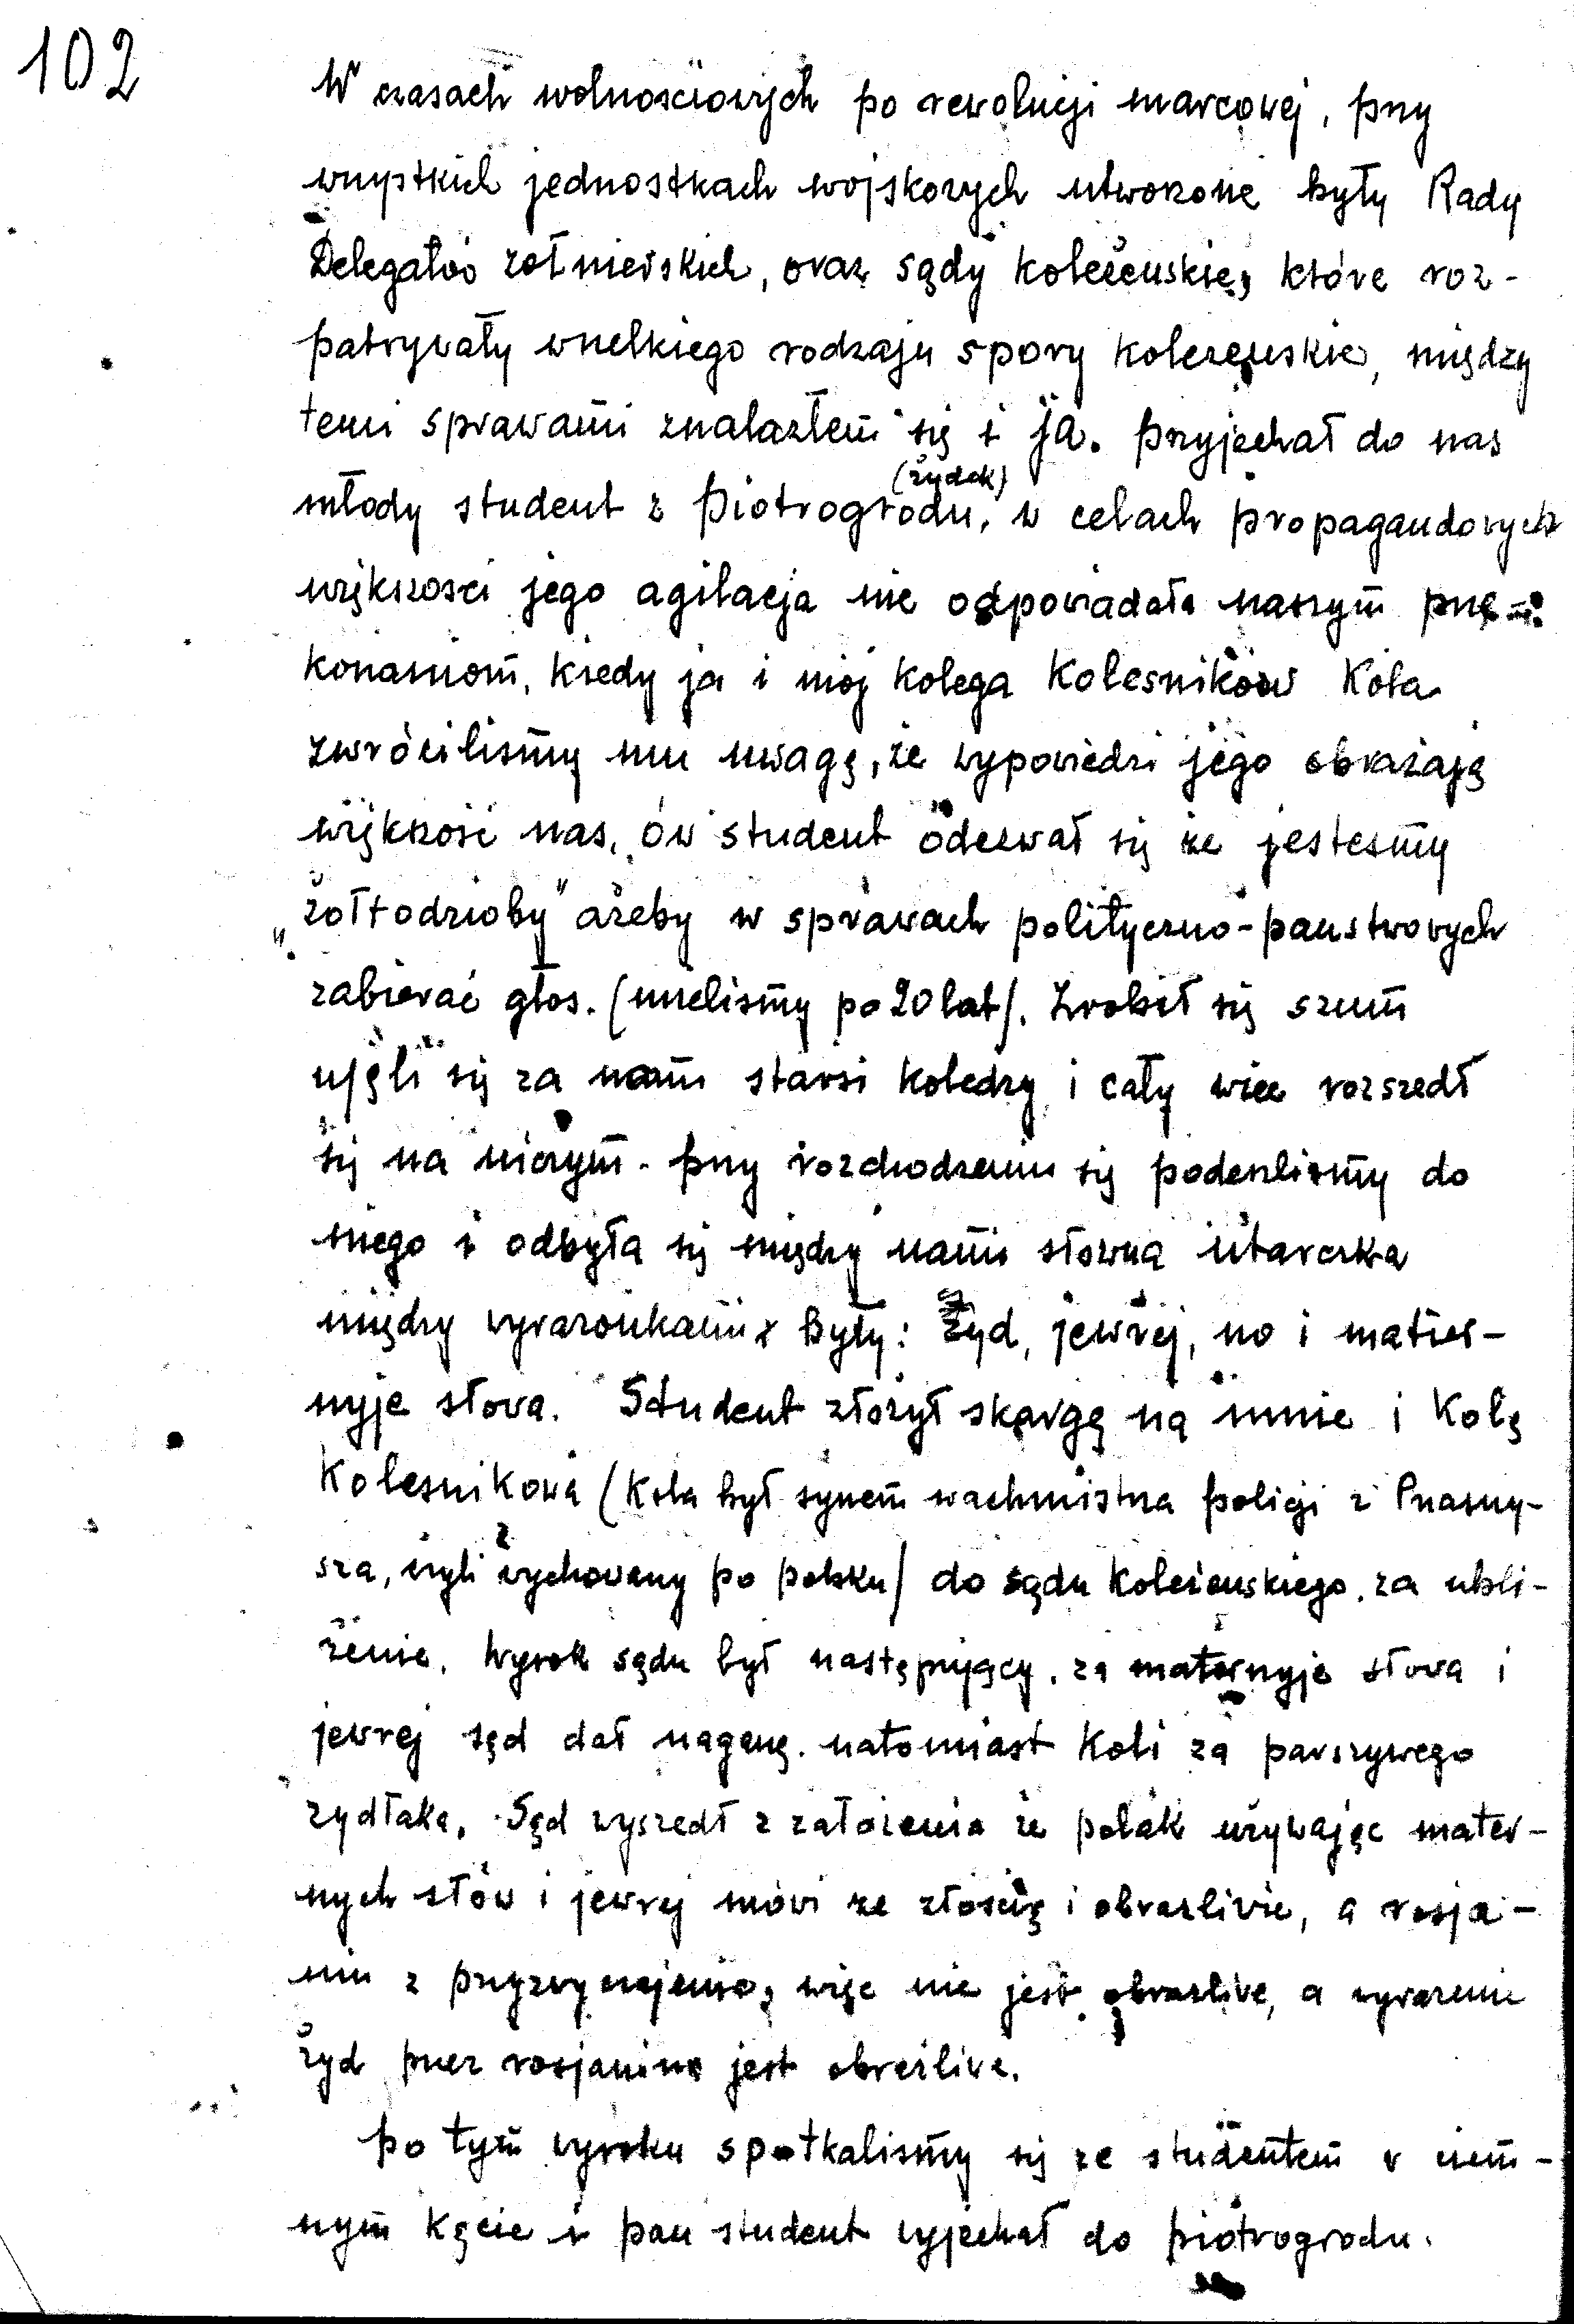 102
W czasach wolnościowych po rewolucji marcowej, przy
wszystkich jednostkach wojskowych utworzone były Rady
Delegatów żołnierskich, oraz sądy koleżeńskie, które roz-
patrywały wszelkiego rodzaju spory koleżeńskie, między
temi sprawami znalazłem się i ja. Przyjechał do nas
(żydek)
młody student z Piotrogrodu, w celach propagandowych
większości jego agitacja nie odpowiadała naszym prze-
konaniom, kiedy ja i mój kolega Kolesników Kola
zwróciliśmy mu uwagę, że wypowiedzi jego obrażają
większość nas, ów student odezwał się że jesteśmy
„żołtodzioby" ażeby w sprawach polityczno-państwowych
zabierać głos. (mieliśmy po 20 lat). Zrobił się szum
ujęli się za nami starsi koledzy i cały wiec rozszedł
się na niczym. Przy rozchodzeniu się podeszliśmy do
niego i odbyła się między nami słowna utarczka
między wyrazonkami były: Żyd, jewrej, no i matier-
nyje słowa. Student złożył skargę na mnie i Kolę
Kolesnikowa (Kola był synem wachmistrza policji z Przasny-
sza, czyli wychowany po polsku) do sądu koleżeńskiego. za ubli-
żenie. Wyrok sądu był następujący. za maternyje słowa i
jewrej sąd dał naganę. natomiast Koli za parszywego
żydłaka. Sąd wyszedł z założenia że polak używając mater-
nych słów i jewrej mówi ze złością i obraźliwie, a rosja-
nin z przyzwyczajenia, więc nie jest obraźliwe, a wyrażenie
żyd przez rosjanina jest obraźliwe.
Po tym wyroku spotkaliśmy się ze studentem w ciem-
nym kącie i pan student wyjechał do Piotrogrodu.